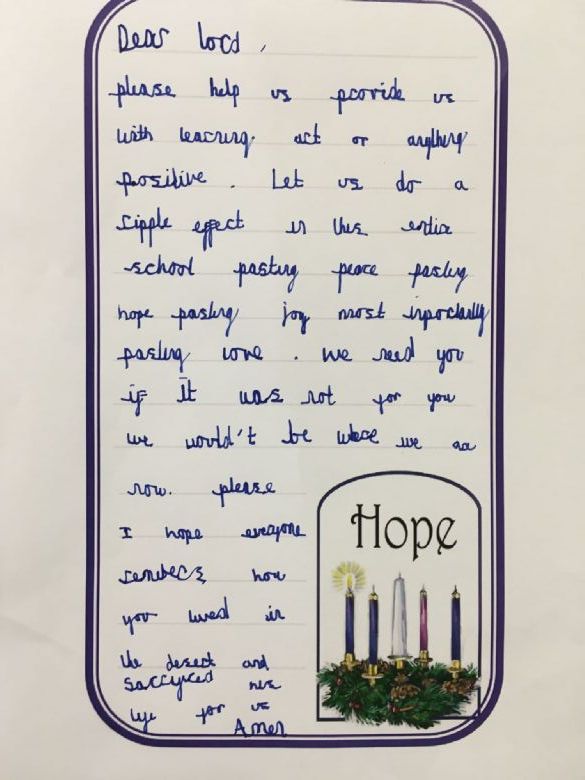 Dear lord,
please help us provide us
with learning. act or anything
positive. Let us do a
ripple effect in this entire
school pasting peace pasting
hope pasting joy most inportantly
pasting love. we need you
if it was not for you
we would't be where we are
now. please
I hope everyone
remebers how
you lived in
the desert and
Hope
life for us
Amen